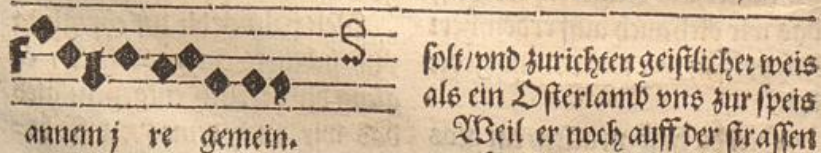 annem j re gemein.
solt/vnd zurichten geistlicher weis
als ein Osterlamb vns zur speis
Weil er noch auff der strassen